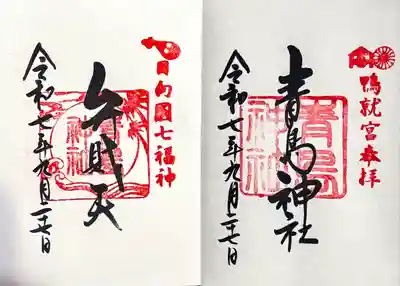 鴨就宮奉拝
青島神社
青島神社
令和七年九月二十七日
日向國七福神
弁財天
青島神社
令和七年九月二十七日